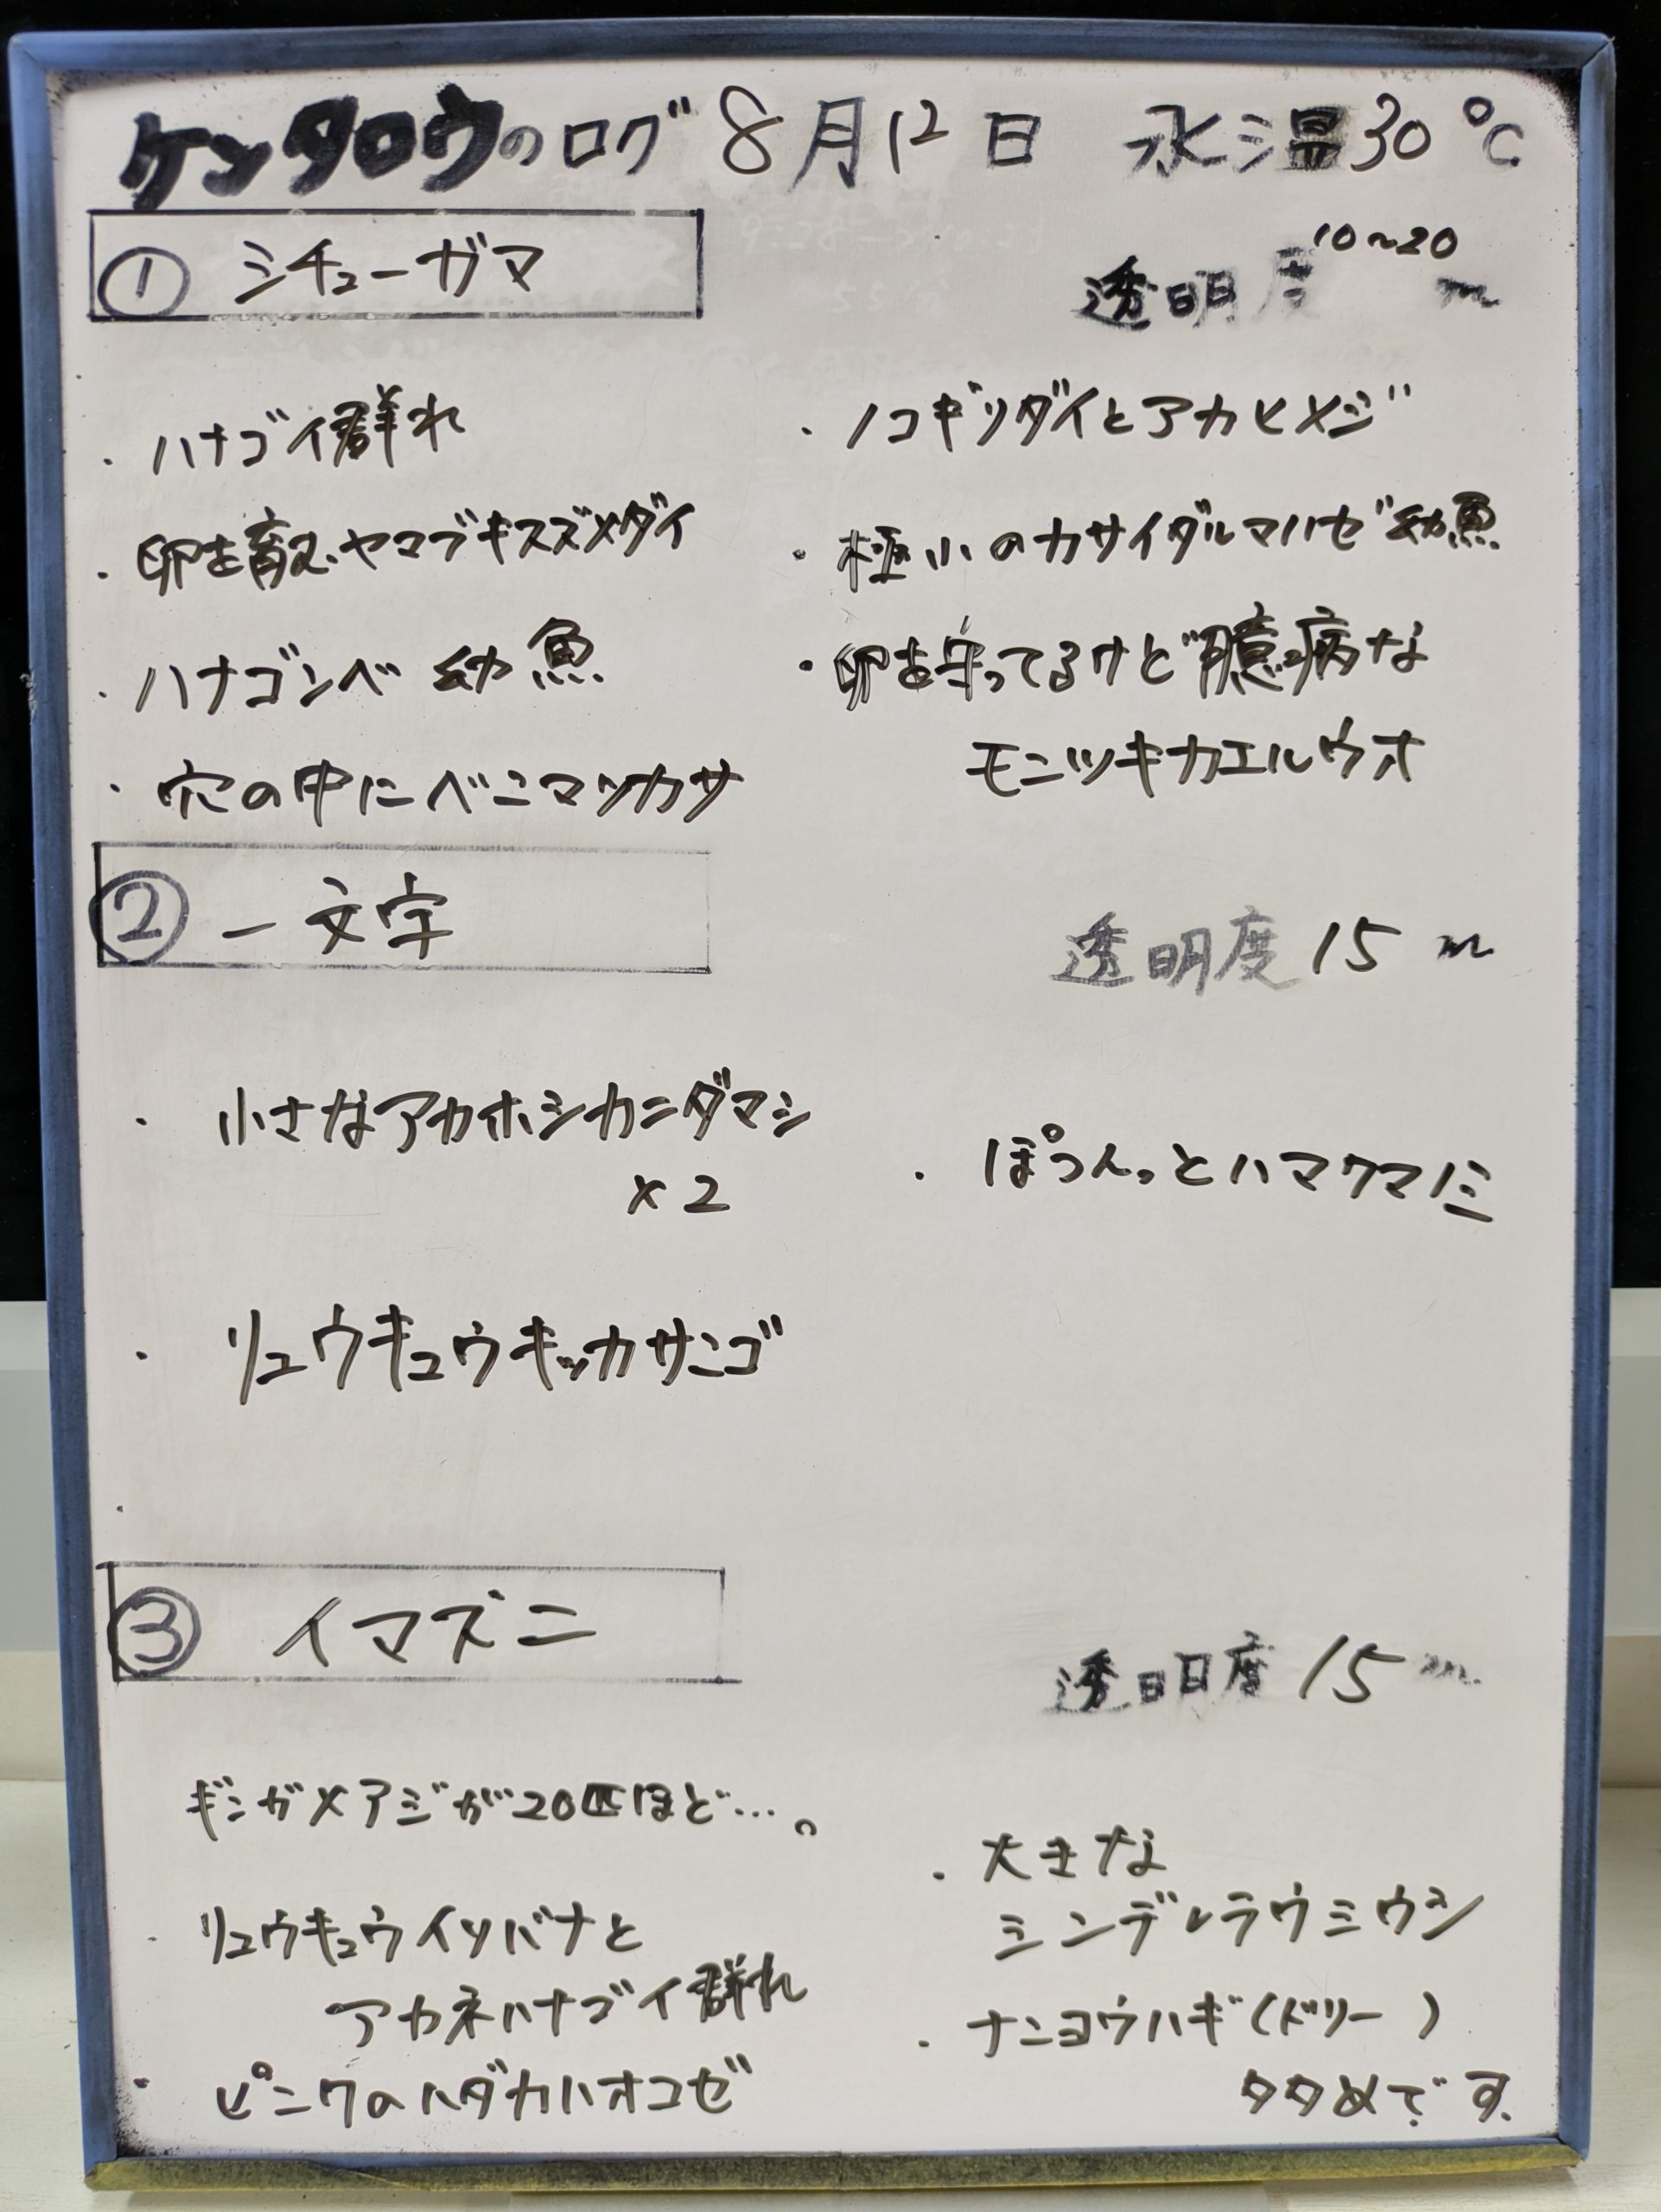 ケンタロウのログ 8月12日 水温30℃
① シチューガマ
透明度 10~20 m
・ハナゴイ群れ
・卵を散、ヤマブキスズメダイ
・ハナゴンベ 幼魚
・穴の中にベニマツカサ
・ノコギリダイとアカヒメジ
・極小のカサイダルマハゼ幼魚
・卵を守ってるけど臆病な
モンツキカエルウオ
② 一文字
透明度 15 m
・小さなアカホシカニダマシ
×2
・リュウキュウキッカサンゴ
・ぽつんっとハマクマノミ
③ イマズニ
透明度 15 m
ギンガメアジが20匹ほど…。
・リュウキュウイソバナと
アカネハナゴイ群れ
・ピンクのハダカハオコゼ
・大きな
シンデレラウミウシ
・ナンヨウハギ(ドリー)
タタめです。